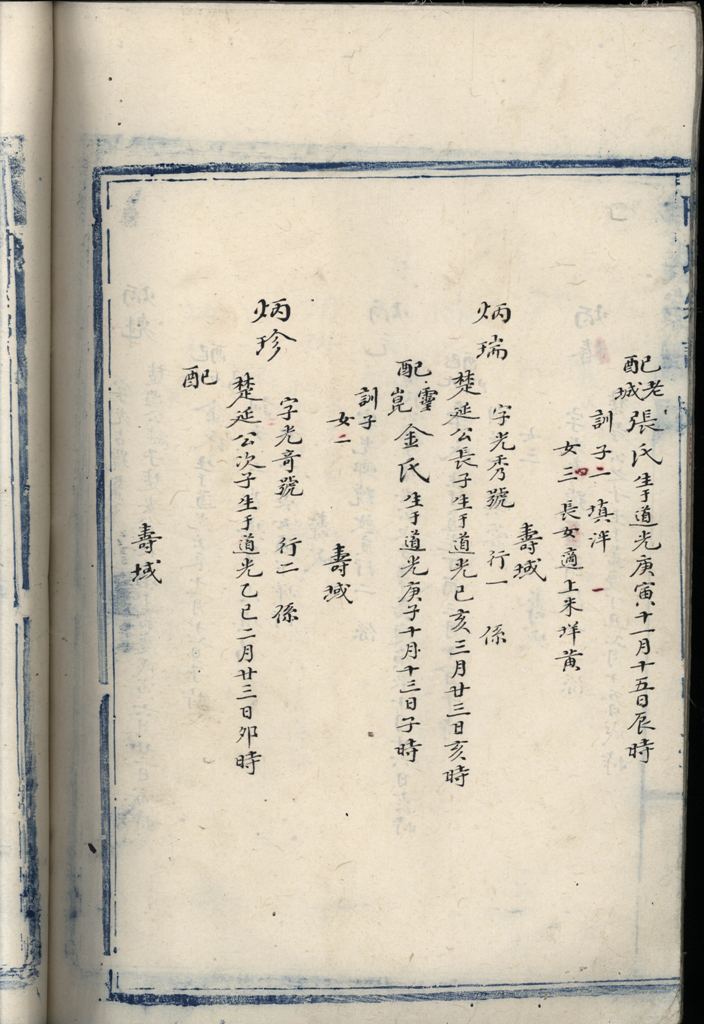 配老城張氏生于道光庚寅十一月十五日辰時
訓子二 填泮
女三 長女適上米垟黃
壽域
炳瑞 字光秀號 行一 係
楚延公長子生于道光己亥三月廿三日亥時
配靈崑金氏生于道光庚子十月十三日子時
訓子
女二
壽域
炳珍 字光奇號 行二 係
楚延公次子生于道光乙巳二月廿三日卯時
配
壽域